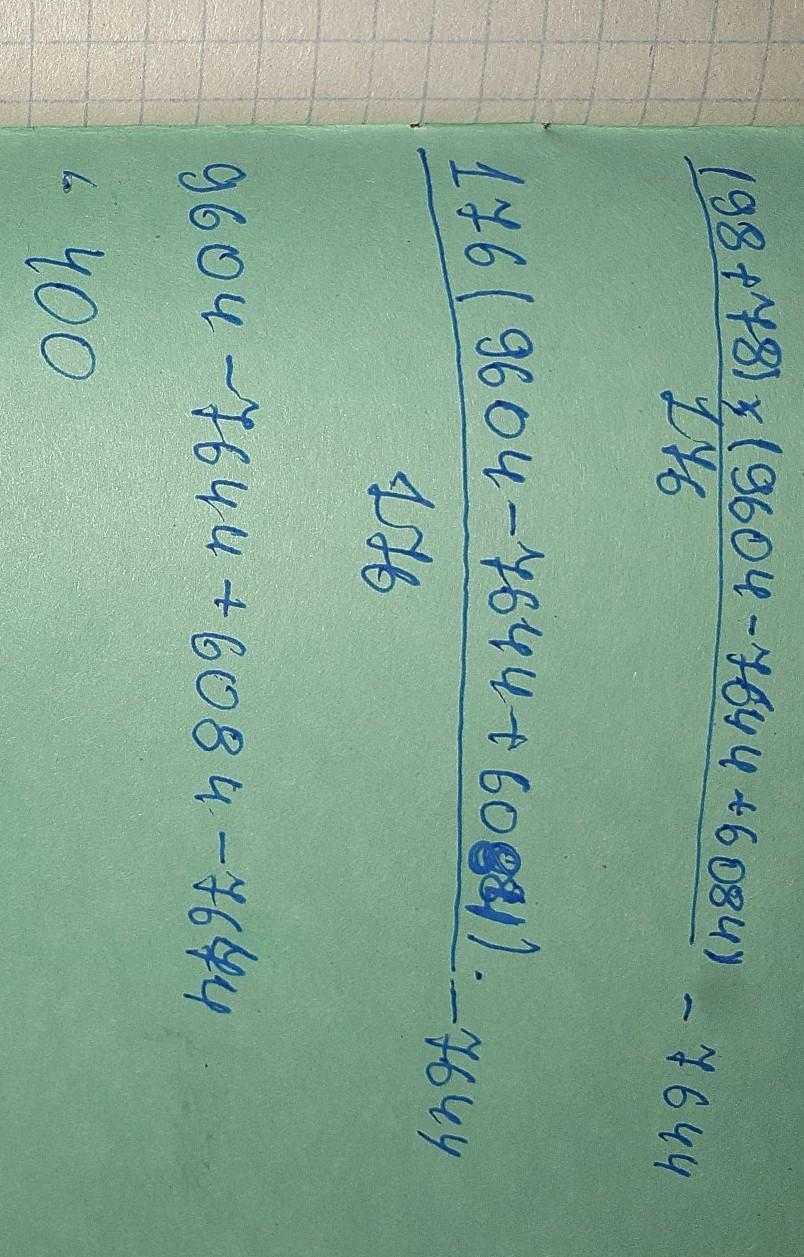 (98+78)x(9604-7644+6084) - 7644
176
176(9604-7644+6084). -7644
176
9604-7644+6084-7644
400